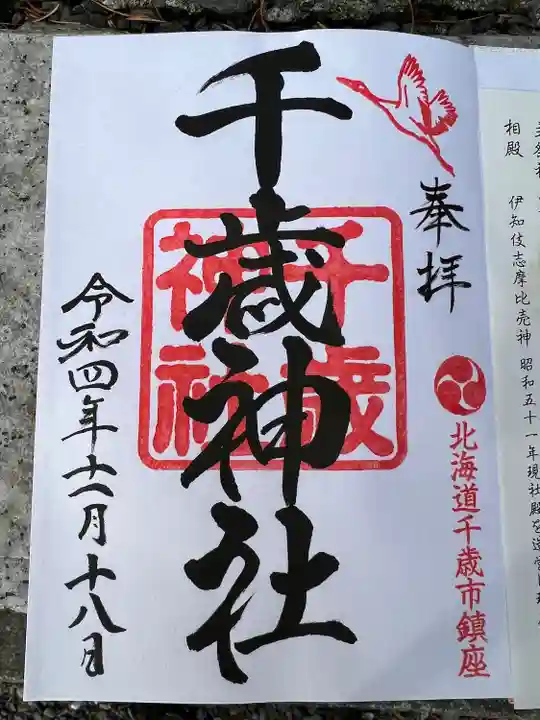 相殿　伊知伎志摩比売神　昭和五十一年現社殿を造営
奉拝
北海道千歳市鎮座
千歳神社
千歳
神社
令和四年十一月十八日